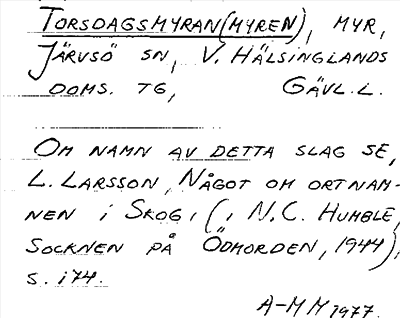 TORSDAGSMYRAN (MYREN), MYR,
JÄRVSÖ SN, V. HÄLSINGLANDS
DOMS. TG, GÄVL.L.
OM NAMN AV DETTA SLAG SE,
L. LARSSON, NÅGOT OM ORTNAM-
NEN I SKOG, (I N.C. HUMBLE,
SOCKNEN PÅ ÖDMORDEN, 1944),
S. 174.
A-MM 1977.